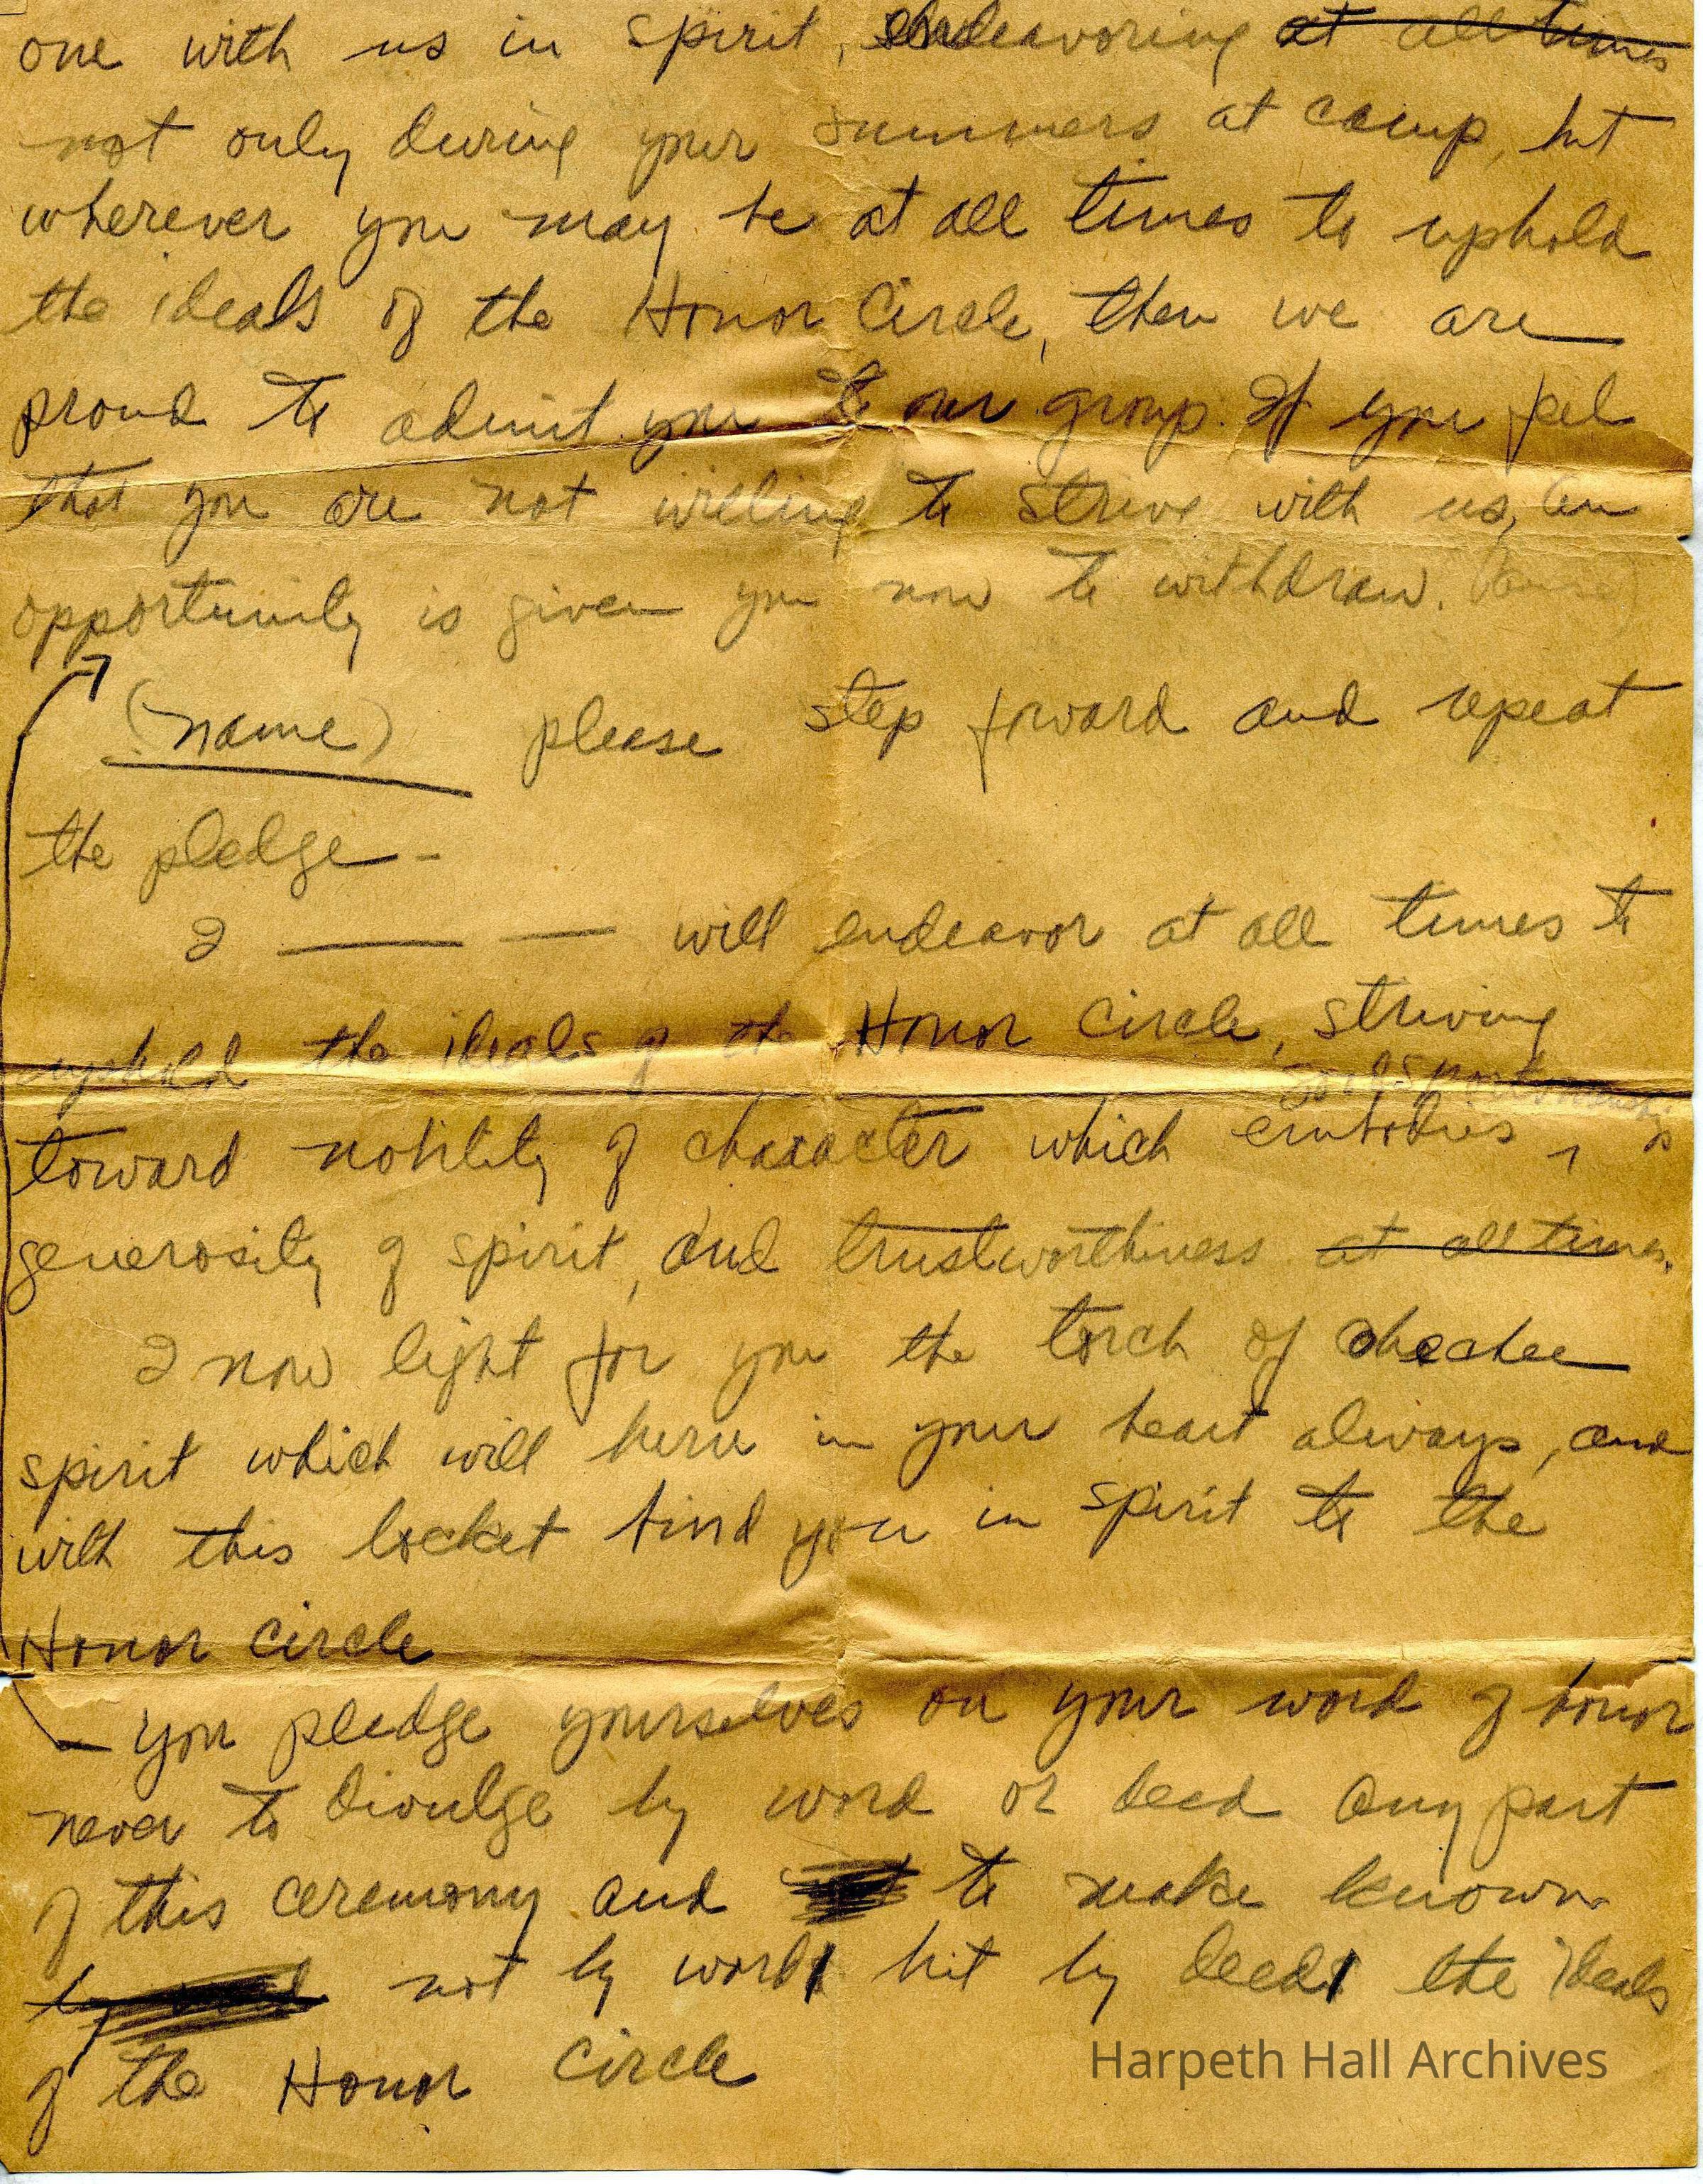 one with us in spirit, endeavoring at all times
not only during your summers at camp, but
wherever you may be at all times to uphold
the ideals of the Honor Circle, then we are
proud to admit you to our group. If you feel
that you are not willing to strive with us, an
opportunity is given you now to withdraw. (Pause)
(name) please step forward and repeat
the pledge -
I —— —— will endeavor at all times to
uphold the ideals of the Honor Circle, striving
toward nobility of character which embodies
generosity of spirit, and trustworthiness at all times.
I now light for you the torch of
spirit which will burn in your heart always, and
with this locket bind you in spirit to the
Honor Circle
You pledge yourselves on your word of honor
never to divulge by word or deed any part
of this ceremony and to make known
by not by word but by deed the ideals
of the Honor Circle
Harpeth Hall Archives